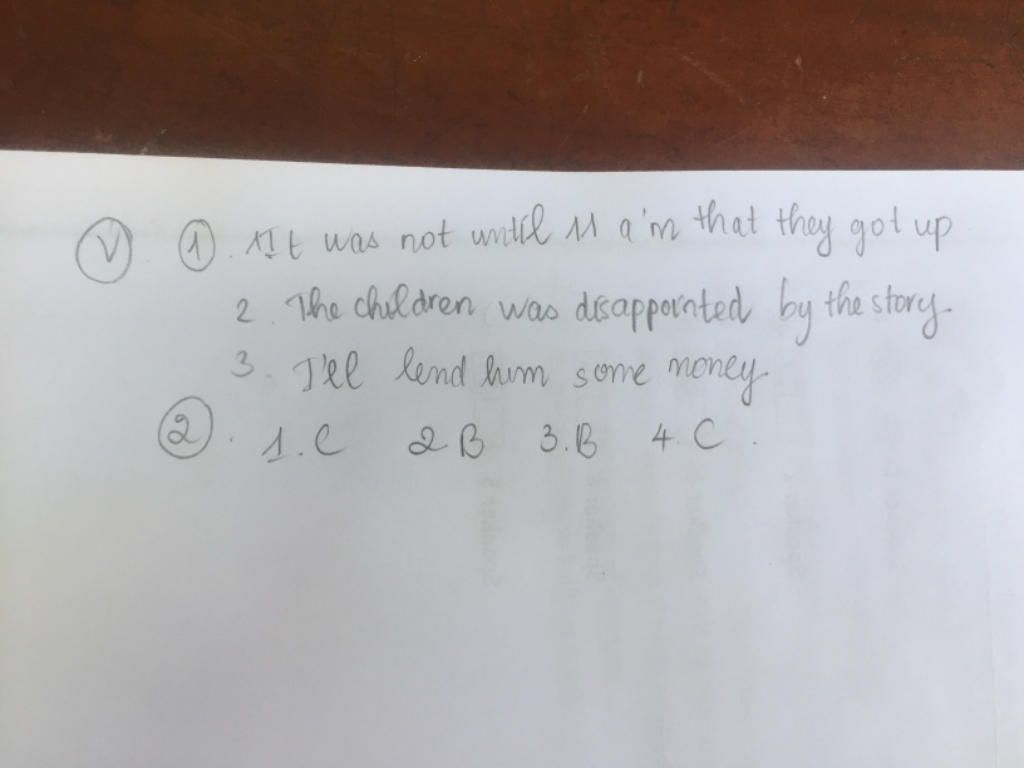 V 1. 1It was not until 11 a'm that they got up
2. The children was disappointed by the story.
3. I'll lend him some money.
2. 1.C 2.B 3.B 4.C.